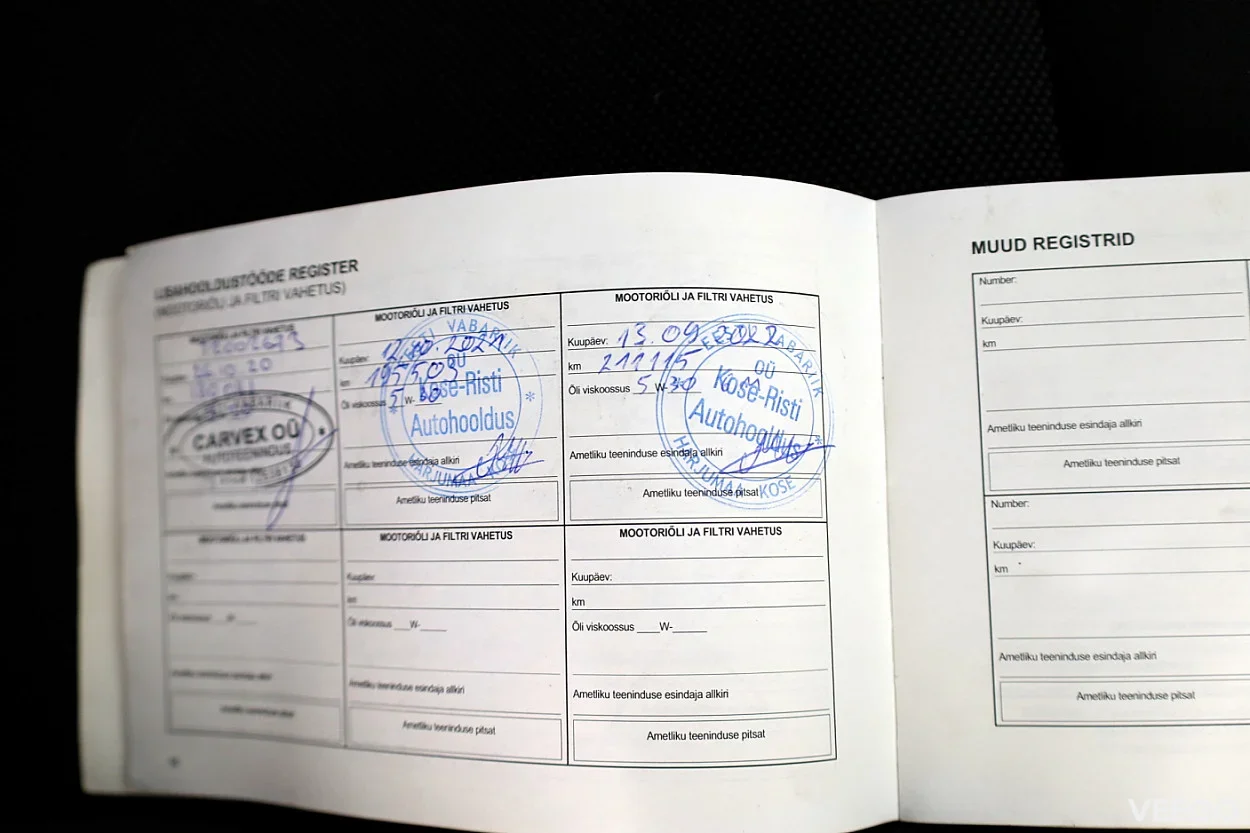 LISAHOOLDUSTÖÖDE REGISTER
(MOOTORIÕLI JA FILTRI VAHETUS)
MOOTORIÕLI JA FILTRI VAHETUS
CARVEX OÜ
AUTOTEENINDUS
MOOTORIÕLI JA FILTRI VAHETUS
Kuupäev: 12.10.2021
km 195503
Õli viskoossus 5 W- 30
VABARIIK
OÜ
Kose-Risti
Autohooldus
HARJUMAA
Ametliku teeninduse esindaja allkiri
Ametliku teeninduse pitsat
MOOTORIÕLI JA FILTRI VAHETUS
Kuupäev: 13.09.2022
km 211115
Õli viskoossus 5 W-30
EESTI VABARIIK
OÜ
Kose-Risti
Autohooldus
HARJUMAA KOSE
Ametliku teeninduse esindaja allkiri
Ametliku teeninduse pitsat
MOOTORIÕLI JA FILTRI VAHETUS
MOOTORIÕLI JA FILTRI VAHETUS
Kuupäev:
km
Õli viskoossus ___W-_____
Ametliku teeninduse esindaja allkiri
Ametliku teeninduse pitsat
MOOTORIÕLI JA FILTRI VAHETUS
Kuupäev:
km
Õli viskoossus ____W-______
Ametliku teeninduse esindaja allkiri
Ametliku teeninduse pitsat
MUUD REGISTRID
Number:
Kuupäev:
km
Ametliku teeninduse esindaja allkiri
Ametliku teeninduse pitsat
Number:
Kuupäev:
km
Ametliku teeninduse esindaja allkiri
Ametliku teeninduse pitsat